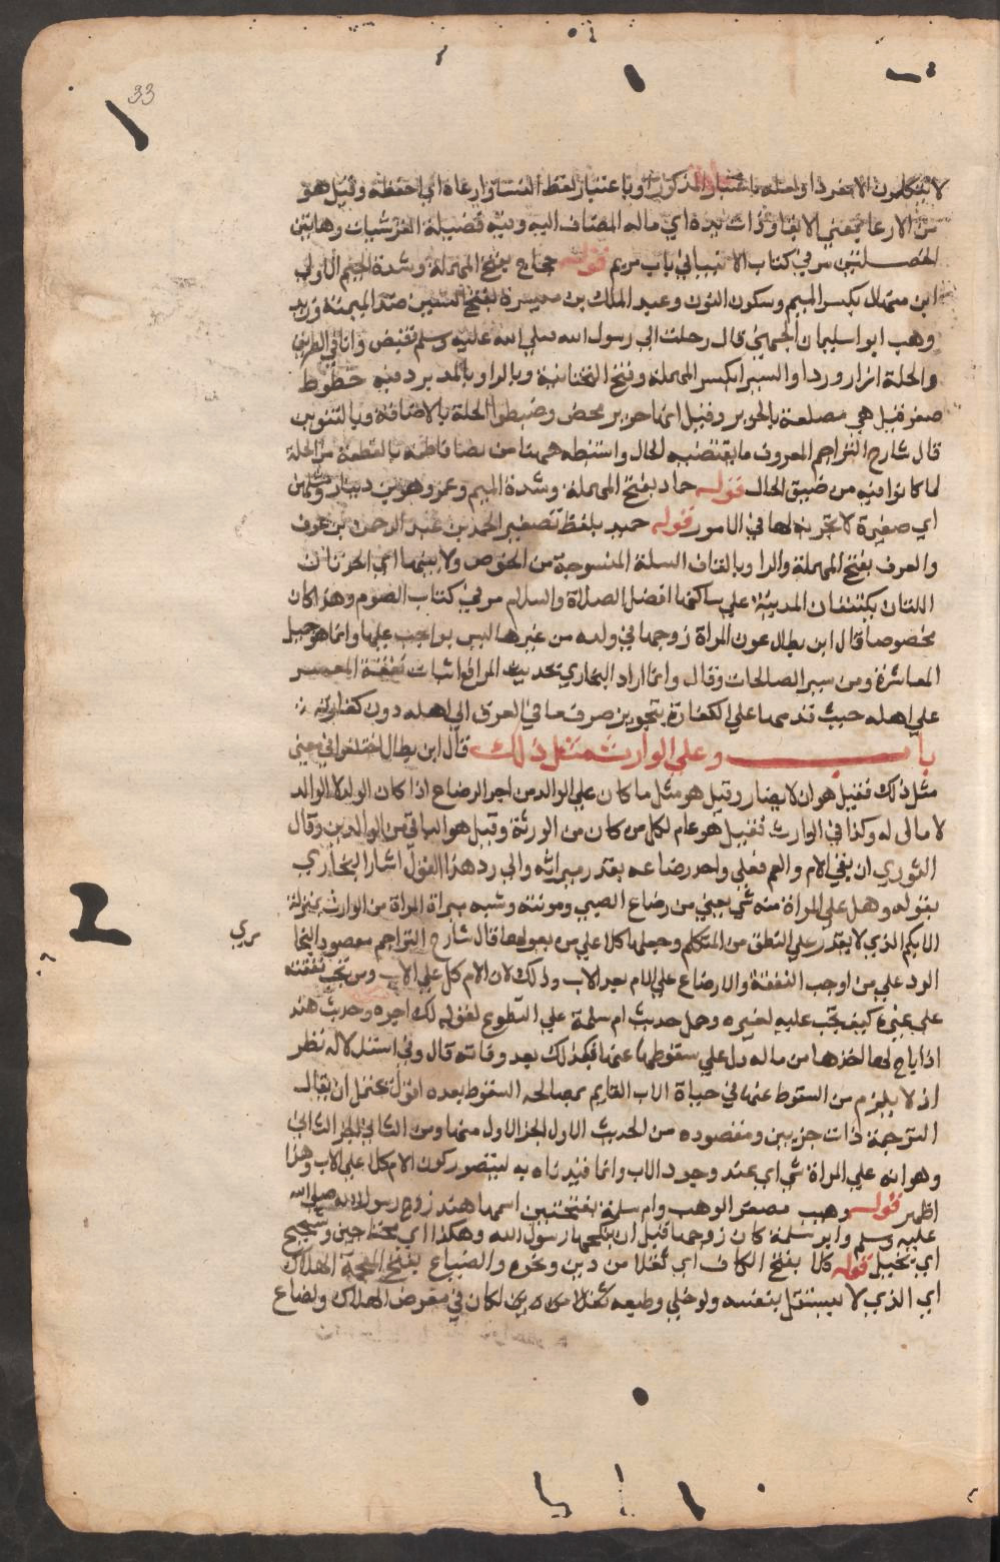 33
لا يتكلمون الا مفردا ولعله باعتبار المذكور او باعتبار لفظ النساء وارعاه اي احفظه وقيل هو
من الارعا بمعني الابقا وذات يده اي ماله المضاف اليه وفيه فضيلة القرشيات وهاتين
الخصلتين مر في كتاب الانبيا في باب مريم قوله حجاج بفتح المهملة وشدة الجيم الاولي
ابن منهال بكسر الميم وسكون النون وعبد الملك بن ميسرة بفتح ضد الميمنة وزيد
وهب ابو سليمان الجهني قال رحلت الي رسول الله صلي الله عليه وسلم فقبض وانا في الطريق
والحلة ازار وردا والسيرا بكسر المهملة وفتح التحتانية وبالرا وبالمد برد فيه خطوط
صفر قيل هي مضلعة بالحرير وقيل انها حرير محض وضبطوا الحلة بالاضافة وبالتنوين
قال شارح التراجم المعروف ما يقتضيه الحال واستنبطه ههنا من رضا فاطمة بالقطعة من الحلة
لما كانوا فيه من ضيق الحال قوله حماد بفتح المهملة وشدة الميم وعمرو هو بن دينار
اي صغيرة لا تجربة لها في الامور قوله حميد بلفظ تصغير الحمد بن عبد الرحمن بن عوف
والعرق بفتح المهملة والرا وبالقاف السلة المنسوجة من الخوص ولابتيها اي الحرتان
اللتان يكتنفان المدينة علي ساكنها افضل الصلاة والسلام مر في كتاب الصوم وهذا كان
مخصوصا قال ابن بطال عون المراة زوجها في ولده من غيرها ليس بواجب عليها وانما هو جميل
المعاشرة ومن سير الصالحات وقال وانما اراد البخاري بحديث اثبات نفقة المعسر
علي اهله حيث قدمها علي الكفارة بتجويز صرف ما في العرق الي اهله دون كفارته
باب وعلي الوارث مثل ذلك قال ابن بطال اختلفوا في معني
مثل ذلك فقيل هو ان لا يضار وقيل هو مثل ما كان علي الوالد من اجر الرضاع اذا كان الولد لا
لا مال له وكذا في الوارث فقيل هو عام لكل من كان من الورثة وقيل هو الباقي من الوالدين وقال
الثوري ان بقي الام والعم فعلي واحد رضاعه بقدر ميراثه والي رد هذا القول اشار البخاري
بقوله وهل علي المراة منه شي يعني من رضاع الصبي ومونته وشبه ميراة المراة من الوارث بمنزلة
الابكم الذي لا يقدر علي النطق من المتكلم وجعلها كلا علي من يعولها قال شارح التراجم مقصود البخا
ري
الرد علي من اوجب النفقة والارضاع علي الام بعد الاب وذلك لان الام كل علي الاب ومن تجب نفقته
علي غيره كيف تجب عليه لغيره وحمل حديث ام سلمة علي التطوع لقوله لك اجره وحديث هند
اذ اباح لها اخذها من ماله دل علي سقوطها عنها فكذلك بعد وفاته قال وفي استدلاله نظر
اذ لا يلزم من السقوط عنها في حياة الاب القايم بمصالحه السقوط بعده اقول يحتمل ان يقال
الترجمة ذات جزيين ومقصوده من الحديث الاول الجز الاول منها ومن الثاني الجز الثاني
وهو انه علي المراة شي اي عند وجود الاب وانما قيدناه به ليتصور كون الام كلا علي الاب وهذا
اظهر قوله وهيب مصغر الوهب وام سلمة بفتحتين اسمها هند زوج رسول الله صلي الله
عليه وسلم وابو سلمة كان زوجها قبل ان ينكحها رسول الله وهكذا اي محتاجين وشحيح
اي بخيل قوله كلا بفتح الكاف اي ثقلا من دين ونحوه والضياع بفتح المعجمة الهلاك
اي الذي لا يستقل بنفسه ولو خلي وطبعه لكان في معرض الهلاك ولضاع